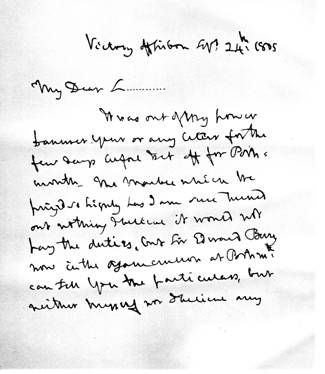 Victory off Lisbon Sept 24th: 1805
My Dear L............
It was out of my power
to answer your or any letter for the
few days before I set off for Ports-
mouth. The Marble which he
prized so highly has I am sure turned
out nothing I believe it would not
pay the duties, but Sir Edward Berry
now in the Agamemnon at Portsmth:
can tell you the particulars, but
neither myself nor I believe any